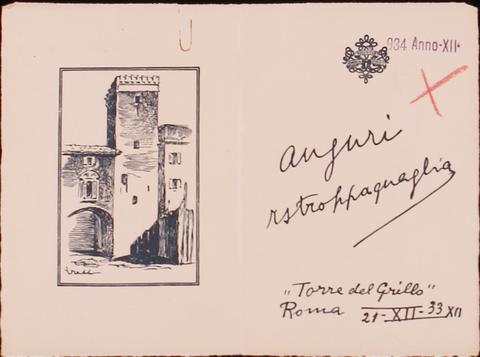 934 Anno-XII•
auguri
"Torre del Grillo"
Roma 21-XII-33 XII